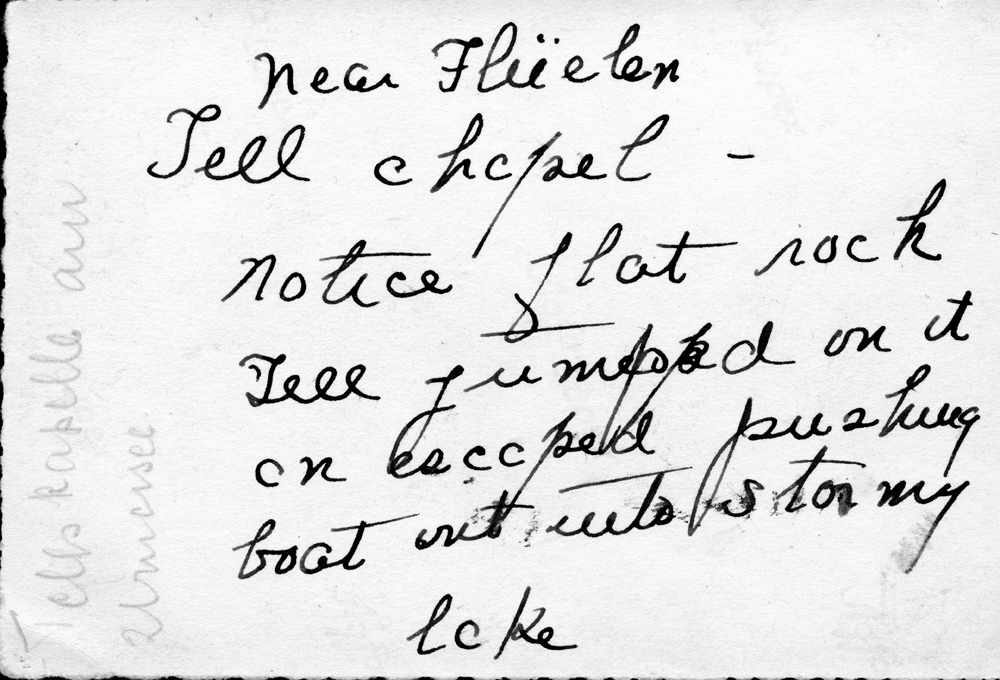 near Flüelen
Tell chapel -
notice flat rock
Tell jumped on it
an escaped pushing
boat out into stormy
lake
Tells kapelle am
Urnersee